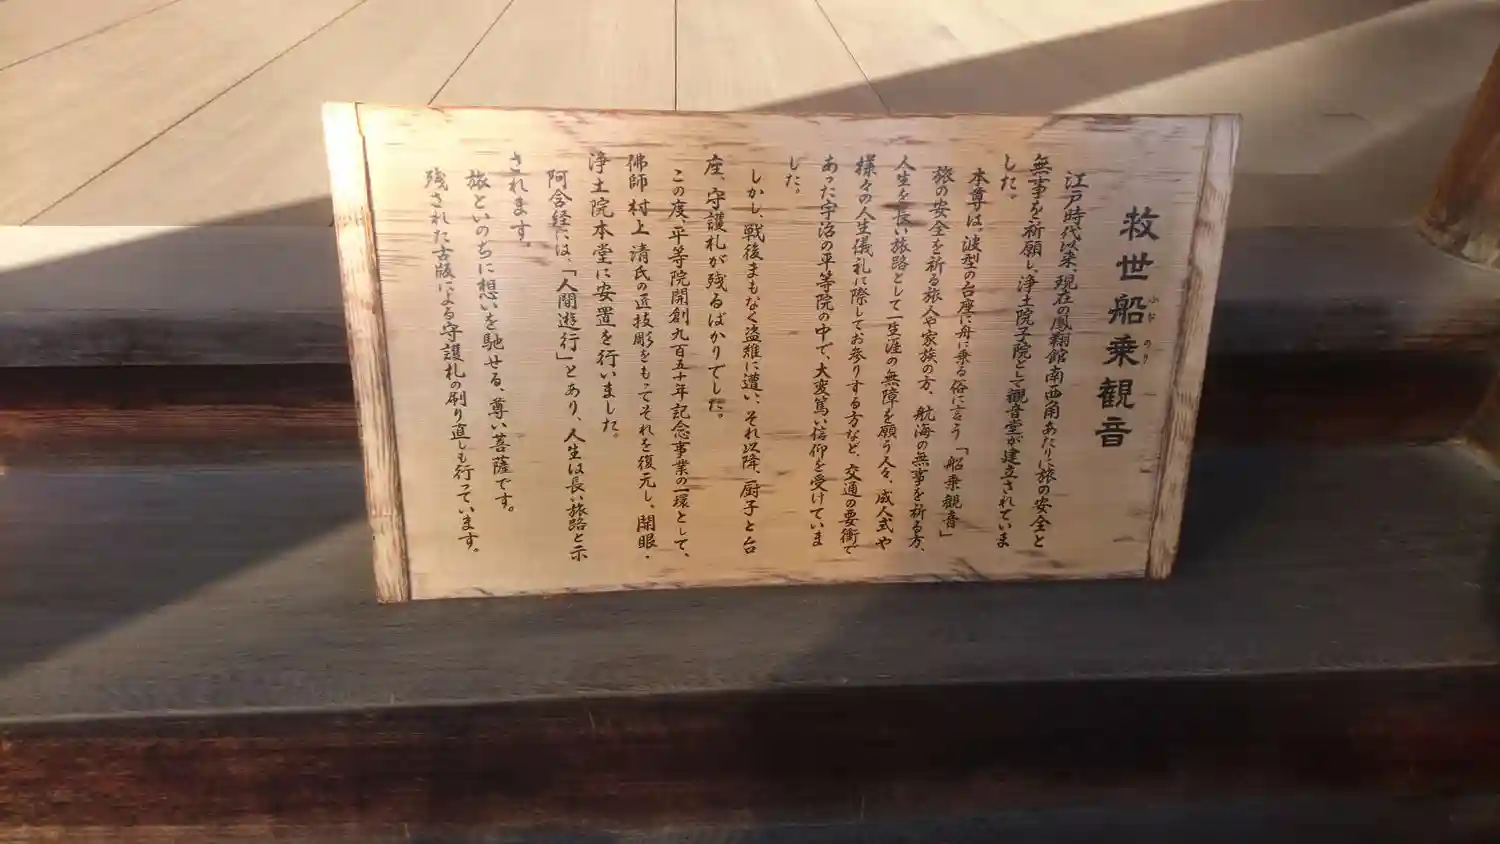 救世船乗観音
ふな のり
江戸時代以来、現在の鳳翔館南西角あたりに旅の安全と
無事を祈願し、浄土院子院として観音堂が建立されていま
した。
本尊は、波型の台座に舟に乗る俗に言う「船乗観音」
旅の安全を祈る旅人や家族の方、航海の無事を祈る方、
人生を長い旅路として一生涯の無障を願う人々、成人式や
様々の人生儀礼に際してお参りする方など、交通の要衝で
あった宇治の平等院の中で、大変篤い信仰を受けていま
した。
しかし、戦後まもなく盗難に遭い、それ以降、厨子と台
座、守護札が残るばかりでした。
この度、平等院開創九百五十年記念事業の一環として、
佛師 村上 清氏の匠技彫をもってそれを復元し、開眼・
浄土院本堂に安置を行いました。
阿含経には、「人間遊行」とあり、人生は長い旅路と示
されます。
旅といのちに想いを馳せる、尊い菩薩です。
残された古版による守護札の刷り直しも行っています。